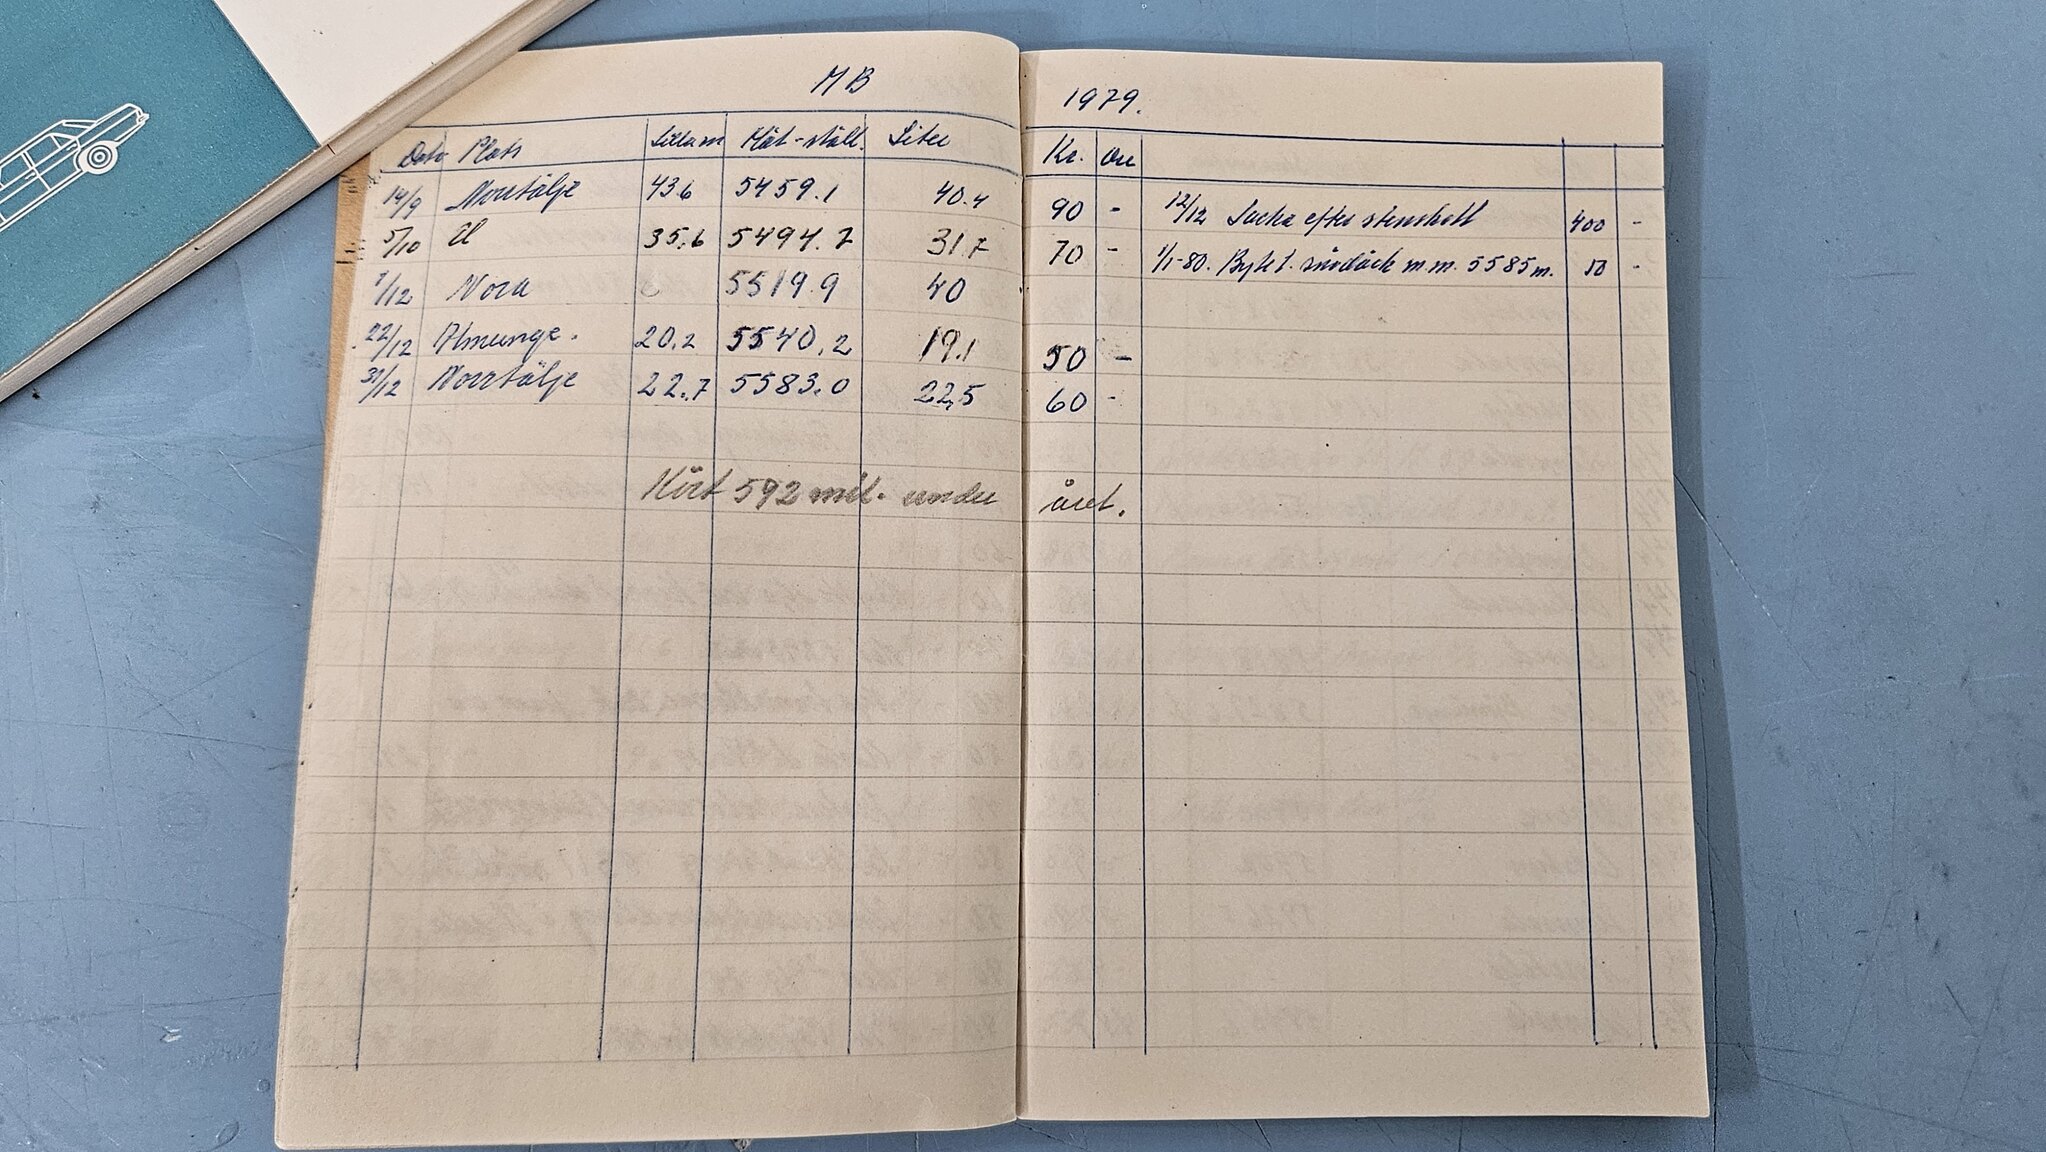 MB 1979.
Dat. Plats Mät-ställ. Liter Kr. Öre
14/9 Norrtälje 43.6 5459.1 40.4 90 - 12/12 Lacka efter stenskott 400 -
5/10 d 35.6 5494.7 31.7 70 - 1/1-80. Byte t. snödäck m.m. 5585 m. 50 -
1/12 Nora 5519.9 40
22/12 Almunge. 20.2 5540.2 19.1 50 -
31/12 Norrtälje 22.7 5583.0 22,5 60 -
Kört 592 mil. under året.